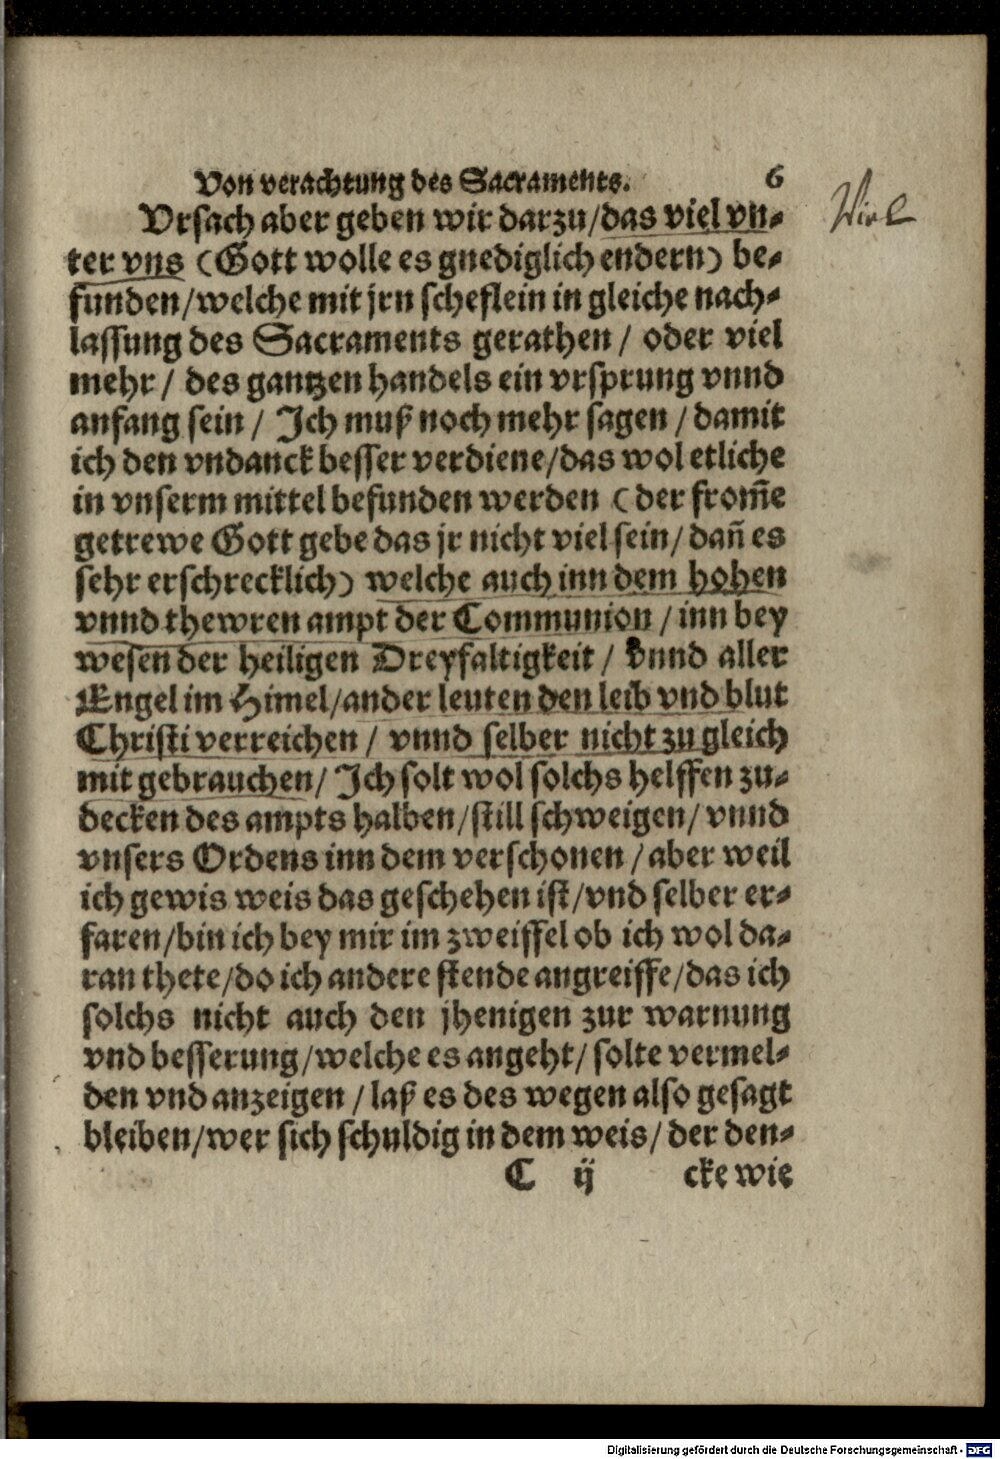 Von verachtung des Sacraments. 6
Vrsach aber geben wir darzu/das viel vn⸗
Viel
ter vns (Gott wolle es gnediglich endern) be⸗
funden/welche mit jrn scheflein in gleiche nach⸗
lassung des Sacraments gerathen / oder viel
mehr / des gantzen handels ein vrsprung vnnd
anfang sein / Ich muß noch mehr sagen / damit
ich den vndanck besser verdiene/das wol etliche
in vnserm mittel befunden werden (der from̃e
getrewe Gott gebe das jr nicht viel sein/ dañ es
sehr erschrecklich) welche auch inn dem hohen
vnnd thewren ampt der Communion / inn bey
wesen der heiligen Dreyfaltigkeit / vnnd aller
Engel im Himel/ander leuten den leib vnd blut
Christi verreichen / vnnd selber nicht zu gleich
mit gebrauchen/ Ich solt wol solchs helffen zu⸗
decken des ampts halben/still schweigen/ vnnd
vnsers Ordens inn dem verschonen / aber weil
ich gewis weis das geschehen ist/vnd selber er⸗
faren/bin ich bey mir im zweiffel ob ich wol da⸗
ran thete/do ich andere stende angreiffe/das ich
solchs nicht auch den jhenigen zur warnung
vnd besserung/welche es angeht/ solte vermel⸗
den vnd anzeigen / laß es des wegen also gesagt
bleiben/wer sich schuldig in dem weis/ der den⸗
C ij cke wie
Digitalisierung gefördert durch die Deutsche Forschungsgemeinschaft - DFG